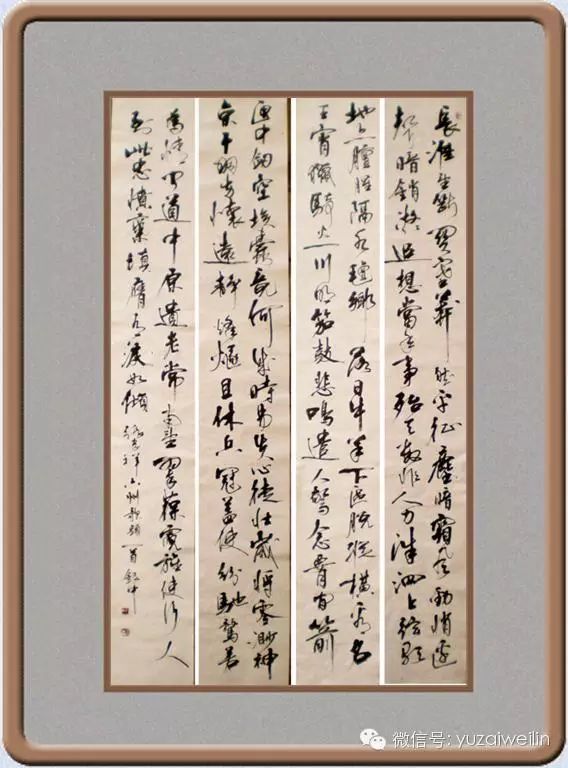 長淮望斷關塞莽然平征塵暗霜風勁悄邊
聲暗銷凝追想當年事殆天數非人力洙泗上弦歌
地亦膻腥隔水氈鄉落日牛羊下區脫縱橫看名
王宵獵騎火一川明笳鼓悲鳴遣人驚念腰間箭
匣中劍空埃蠹竟何成時易失心徒壯歲將零渺神
京干羽方懷遠靜烽燧且休兵冠蓋使紛馳騖若
為情聞道中原遺老常南望翠葆霓旌使行人
到此忠憤氣填膺有淚如傾 張孝祥六州歌頭一首
微信号: yuzaiweilin